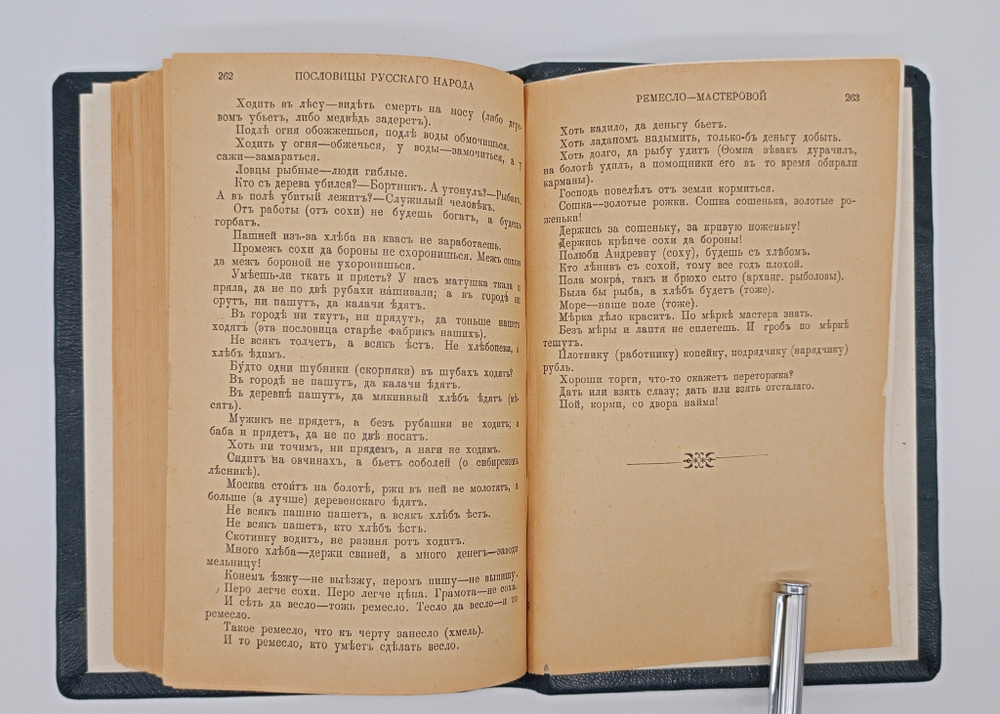 262
ПОСЛОВИЦЫ РУССКАГО НАРОДА
Ходить въ лѣсу—видѣть смерть на носу (либо дере-
вомъ убьетъ, либо медвѣдь задеретъ).
Подлѣ огня обожжешься, подлѣ воды обмочишься.
Ходить у огня—обжечься, у воды—замочиться, а у
сажи—замараться.
Ловцы рыбные—люди гиблые.
Кто съ дерева убился?—Бортникъ. А утонулъ?—Рыбакъ.
А въ полѣ убитый лежитъ?—Служилый человѣкъ.
Отъ работы (отъ сохи) не будешь богатъ, а будешь
горбатъ.
Пашней изъ-за хлѣба на квасъ не заработаешь.
Промежъ сохи да бороны не схоронишься. Межъ сохою
да межъ бороной не ухоронишься.
Умѣешь-ли ткать и прясть? У насъ матушка ткала и
пряла, да не по двѣ рубахи нашивали; а въ городѣ ни
орутъ, ни пашутъ, да калачи ѣдятъ.
Въ городѣ ни ткутъ, ни прядутъ, да тоньше нашего
ходятъ (эта пословица старѣе фабрикъ нашихъ).
Не всякъ толчетъ, а всякъ ѣстъ. Не хлѣбопеки, а
хлѣбъ ѣдимъ.
Будто одни шубники (скорняки) въ шубахъ ходятъ?
Въ городѣ не пашутъ, да калачи ѣдятъ.
Въ деревнѣ пашутъ, да мякинный хлѣбъ ѣдятъ (мѣ-
сятъ).
Мужикъ не прядетъ, а безъ рубашки не ходитъ; а
баба и прядетъ, да не по двѣ носитъ.
Хоть ни точимъ, ни прядемъ, а наги не ходимъ.
Сидитъ на овчинахъ, а бьетъ соболей (о сибирскомъ
лѣсникѣ).
Москва стоитъ на болотѣ, ржи въ ней не молотятъ, а
больше (а лучше) деревенскаго ѣдятъ.
Не всякъ пашню пашетъ, а всякъ хлѣбъ ѣстъ.
Не всякъ пашетъ, кто хлѣбъ ѣстъ.
Скотинку водить, не разиня ротъ ходить.
Много хлѣба—держи свиней, а много денегъ—заводи
мельницу!
Конемъ ѣзжу—не выѣзжу, перомъ пишу—не выпишу.
Перо легче сохи. Перо легче цѣпа. Грамота—не соха.
И сѣть да весло—тожъ ремесло. Тесло да весло—и то
ремесло.
Такое ремесло, что къ черту занесло (хмель).
И то ремесло, кто умѣетъ сдѣлать весло.
РЕМЕСЛО—МАСТЕРОВОЙ
263
Хоть кадило, да деньгу бьетъ.
Хоть ладаномъ надымить, только-бъ деньгу добыть.
Хоть долго, да рыбу удитъ (Ѳомка зѣвакъ дурачилъ,
на болотѣ удилъ, а помощники его въ то время обирали
карманы).
Господь повелѣлъ отъ земли кормиться.
Сошка—золотые рожки. Сошка сошенька, золотые ро-
женьки!
Держись за сошеньку, за кривую ноженьку!
Держись крѣпче сохи да бороны!
Полюби Андревну (соху), будешь съ хлѣбомъ.
Кто лѣнивъ съ сохой, тому все годъ плохой.
Пола мокра, такъ и брюхо сыто (арханг. рыболовы).
Была бы рыба, а хлѣбъ будетъ (тоже).
Море—наше поле (тоже).
Мѣрка дѣло краситъ. По мѣркѣ мастера знать.
Безъ мѣры и лаптя не сплетешь. И гробъ по мѣркѣ
тешутъ.
Плотнику (работнику) копейку, подрядчику (нарядчику)
рубль.
Хороши торги, что-то скажетъ переторжка?
Дать или взять слазу; дать или взять отсталаго.
Пой, корми, со двора найми!